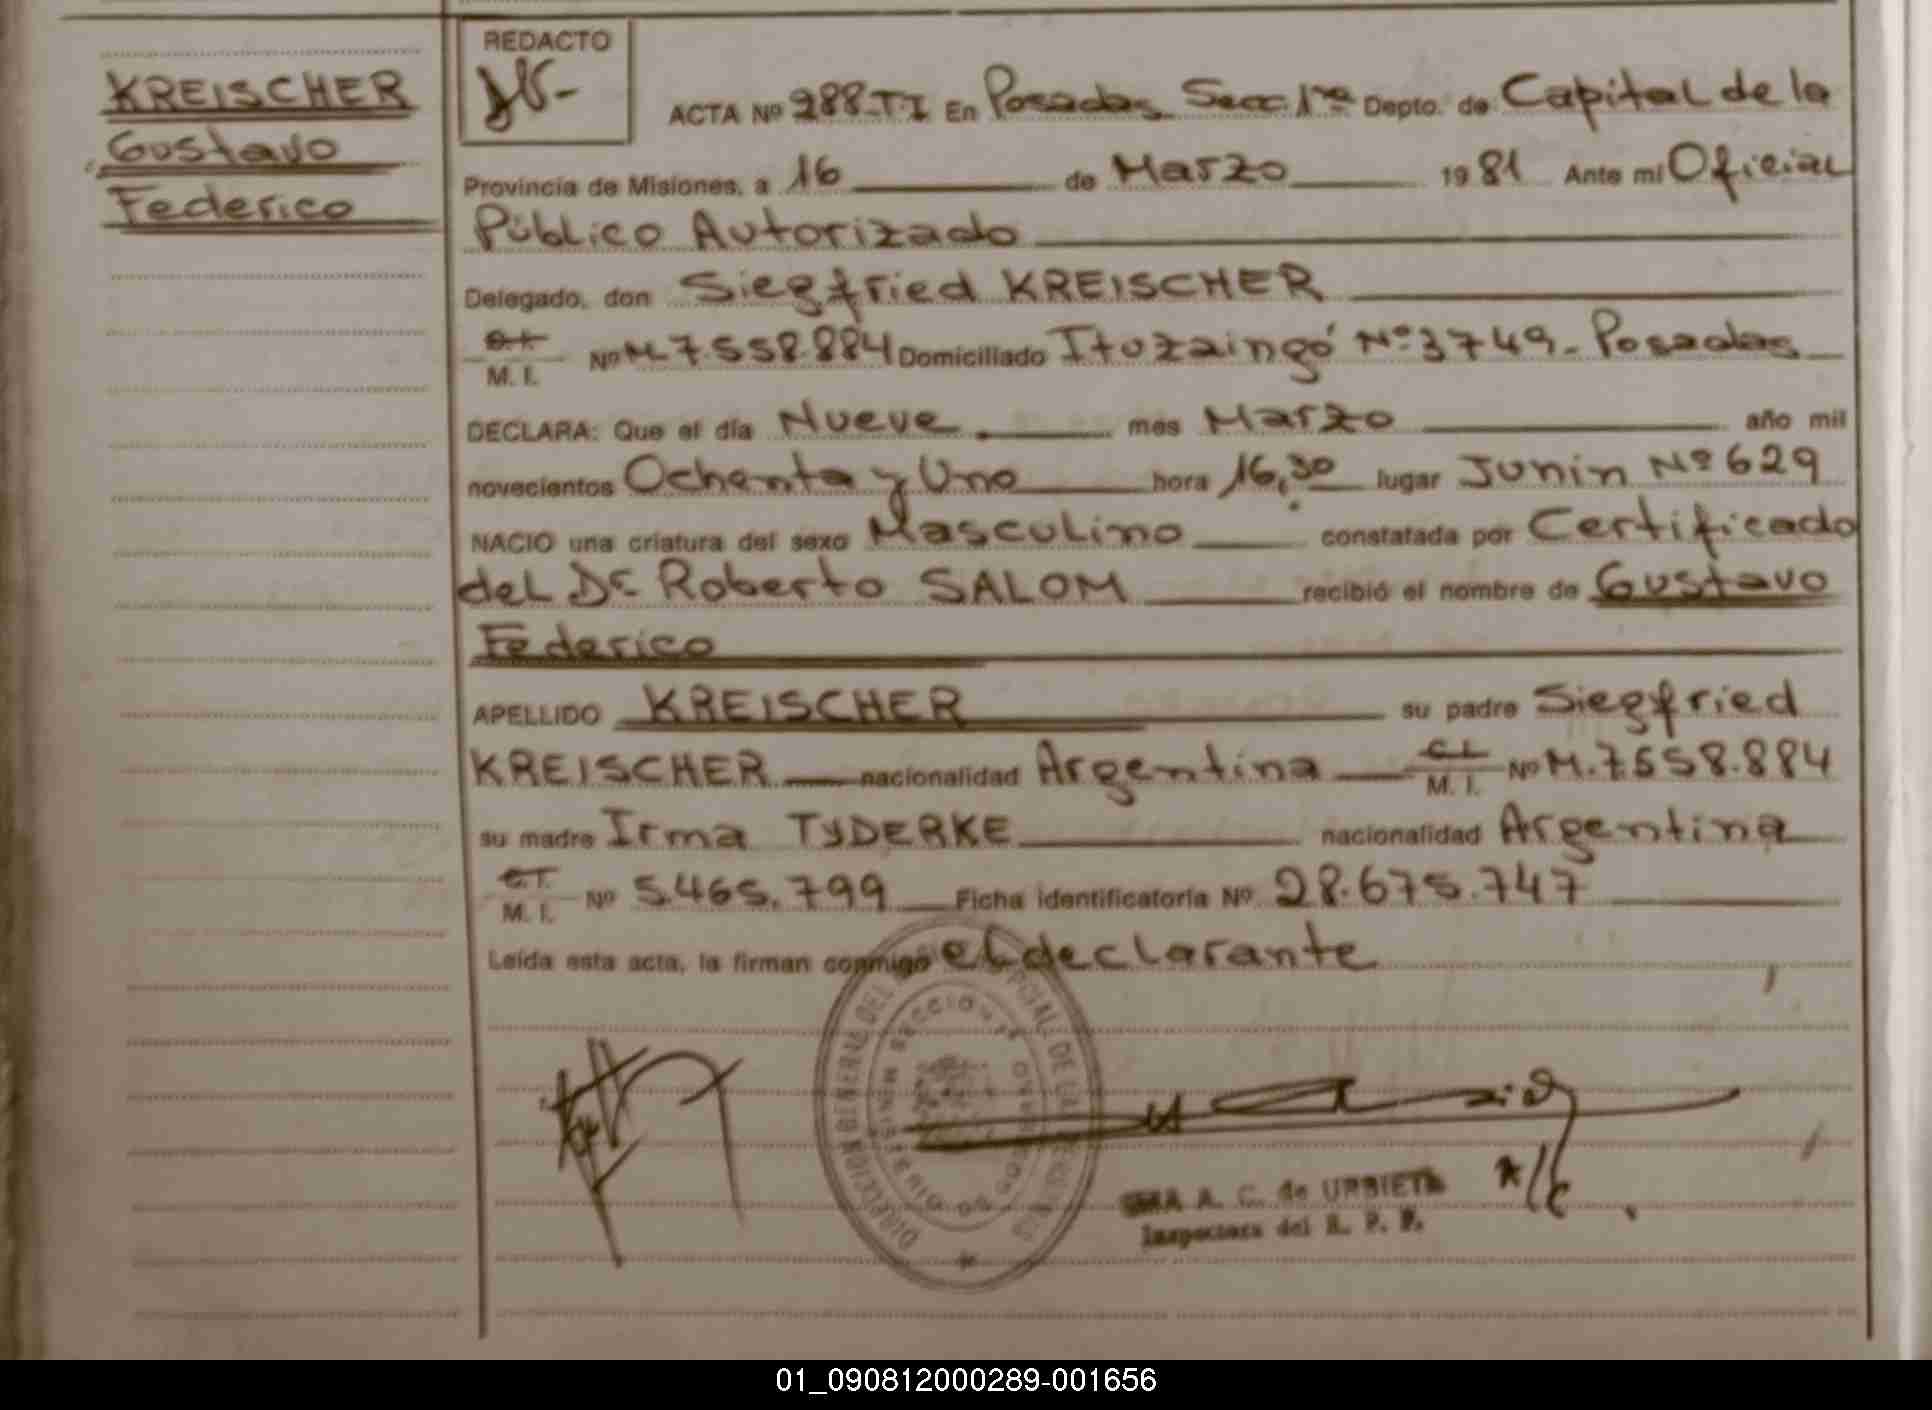 KREISCHER
Gustavo
Federico
REDACTO
ACTA Nº 288-TI En Posadas Secc. 1ra Depto. de Capital de la
Provincia de Misiones, a 16 de Marzo 1981 Ante mi Oficial
Público Autorizado
Delegado, don Siegfried KREISCHER
C.I. M. I. Nº M.7.558.884 Domiciliado Ituzaingó Nº 3749- Posadas
DECLARA: Que el día Nueve mes Marzo año mil
novecientos Ochenta y Uno hora 16,30 lugar Junin Nº 629
NACIO una criatura del sexo Masculino constatada por Certificado
del Dr. Roberto SALOM recibió el nombre de Gustavo
Federico
APELLIDO KREISCHER su padre Siegfried
KREISCHER nacionalidad Argentina C.I. M. I. Nº M.7.558.884
su madre Irma TYDERKE nacionalidad Argentina
C.I. M. I. Nº 5.465.799 Ficha identificatoria Nº 28.675.747
Leída esta acta, la firman conmigo el declarante
DIRECCION GENERAL DEL PROVINCIAL DE LAS
A. C. de URBIETA a/c
Inspectora del R. P. P.
01_090812000289-001656